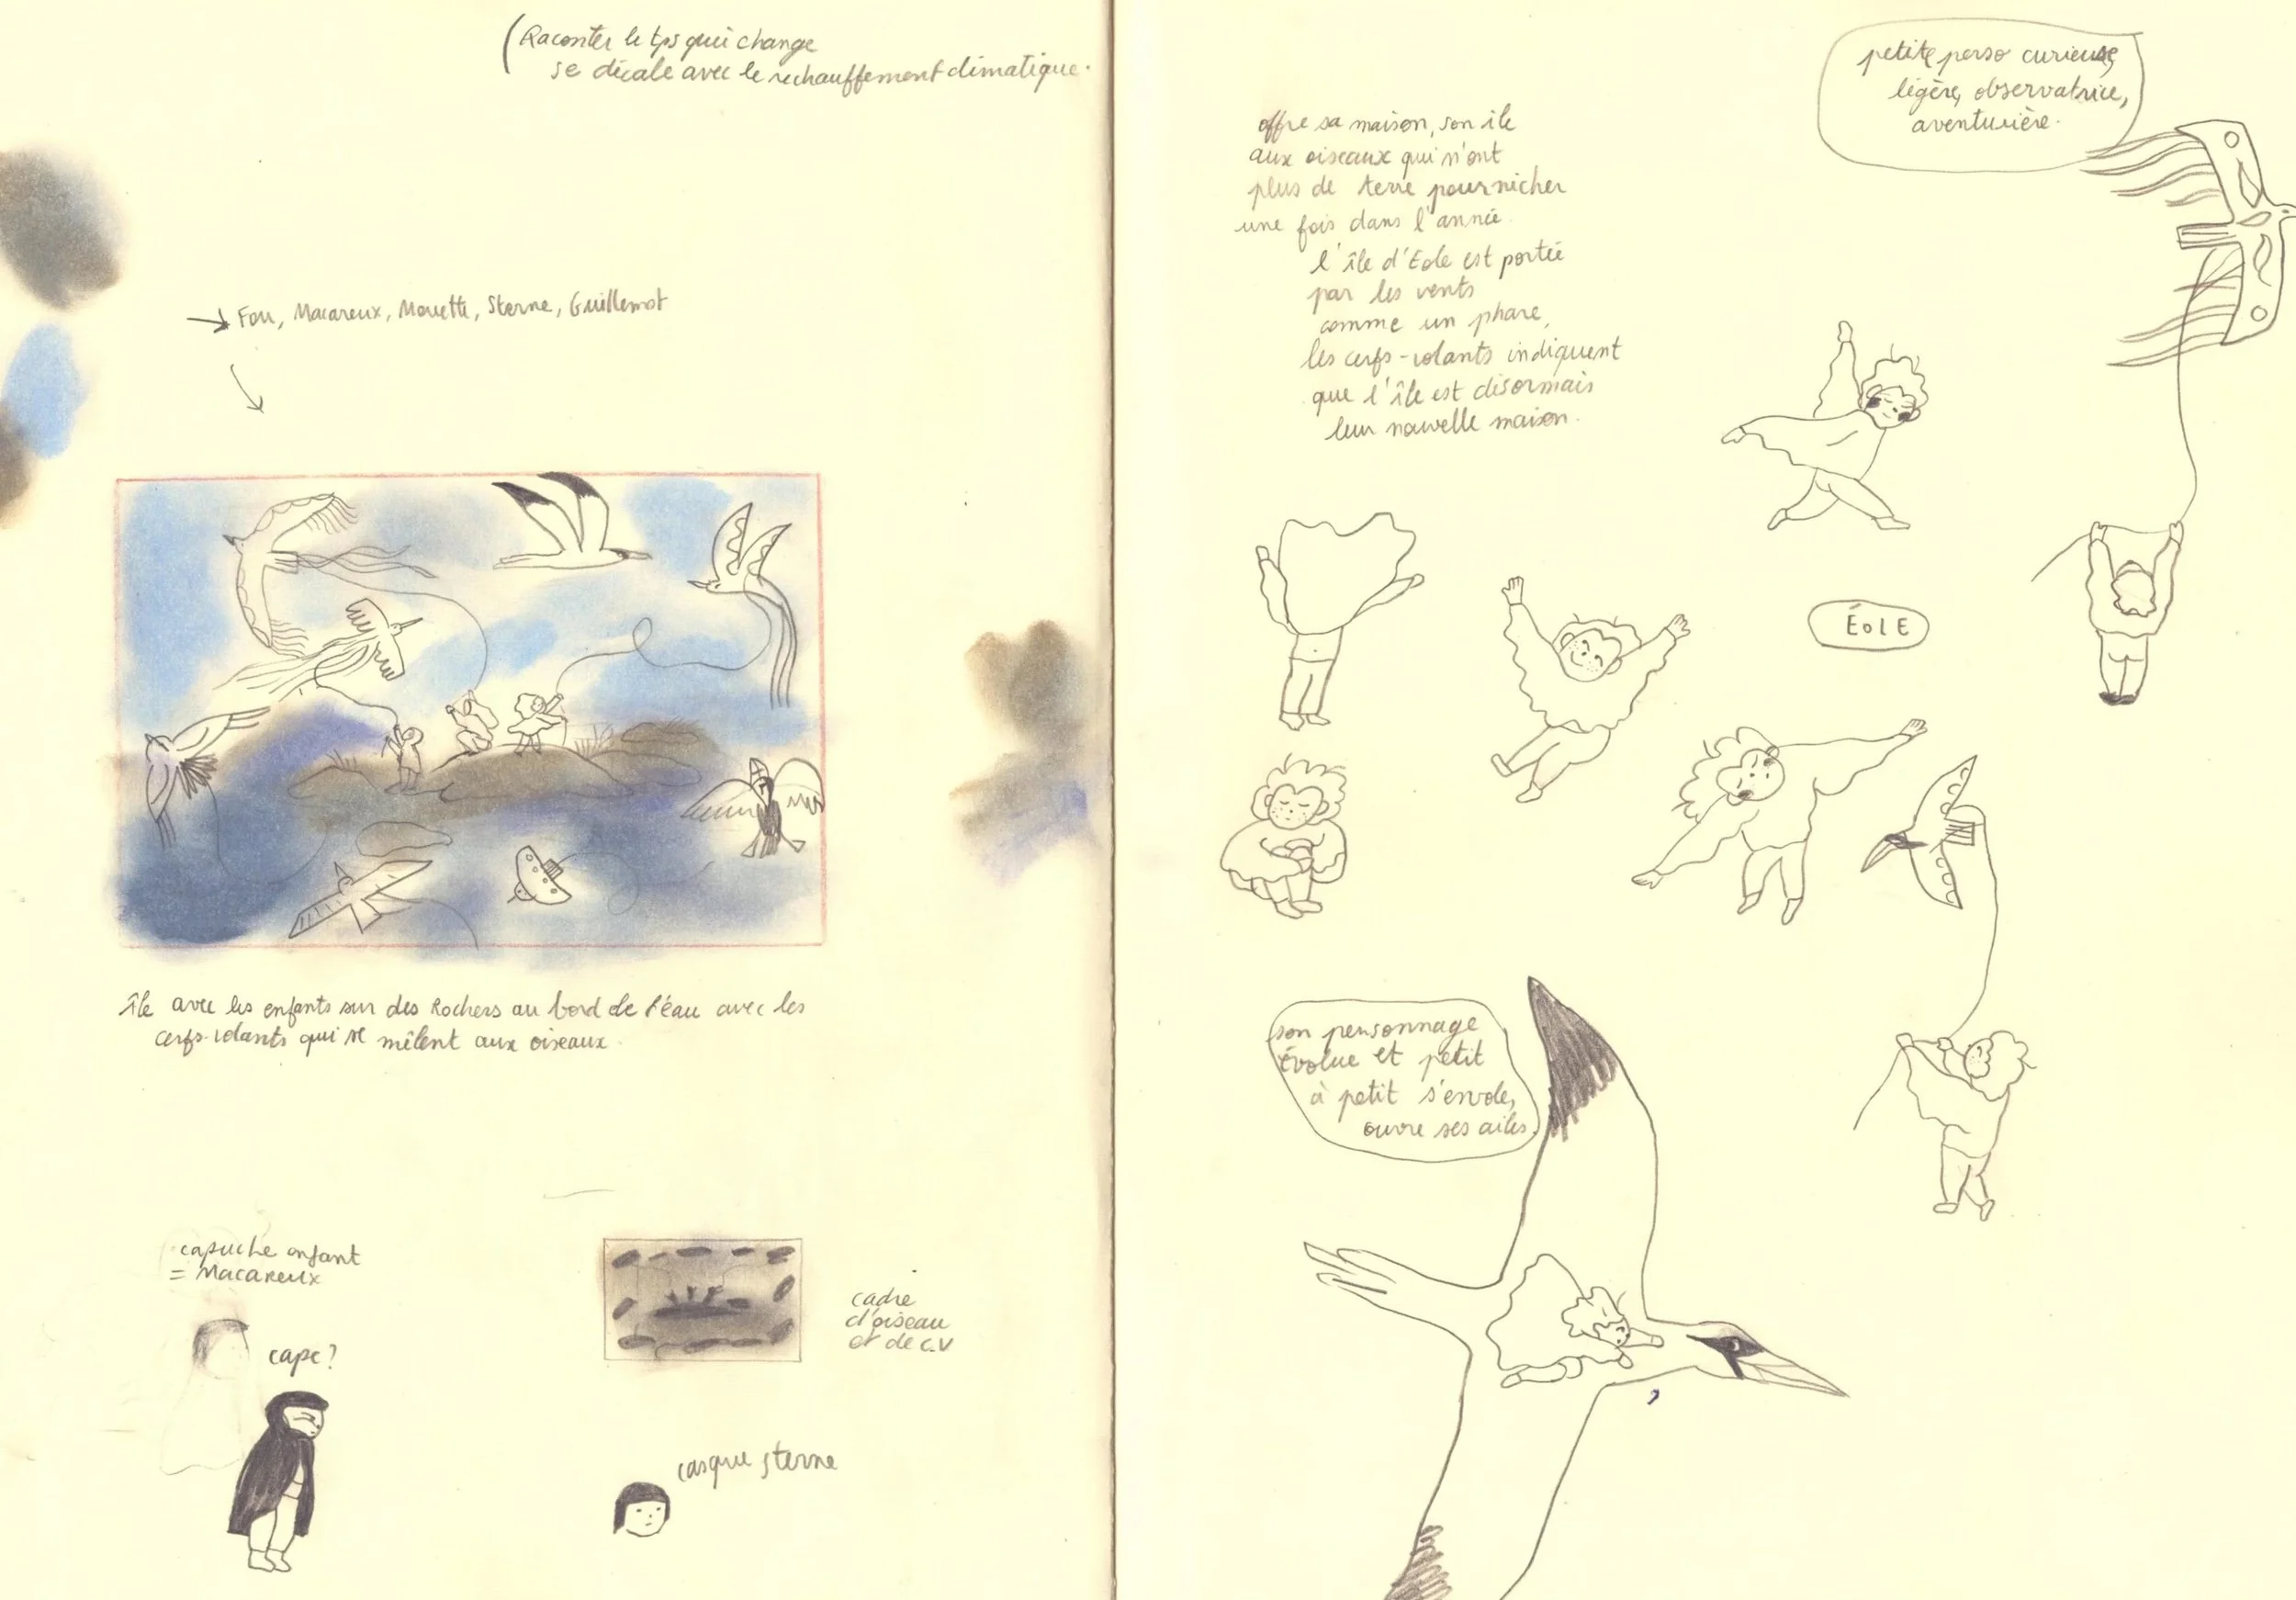 (Raconter le tps qui change
se décale avec le rechauffement climatique.
→ Fou, Macareux, Mouette, Sterne, Guillemot
île avec les enfants sur des Rochers au bord de l'eau avec les
cerfs-volants qui se mêlent aux oiseaux.
capuche enfant
= Macareux
cape?
cadre
d'oiseau
et de c.v
casque sterne
petite perso curieuse,
légère, observatrice,
aventurière.
offre sa maison, son île
aux oiseaux qui n'ont
plus de terre pour nicher
une fois dans l'année.
l'île d'Eole est portée
par les vents
comme un phare,
les cerfs-volants indiquent
que l'île est désormais
leur nouvelle maison.
ÉOLE
son personnage
évolue et petit
à petit s'envole,
ouvre ses ailes.